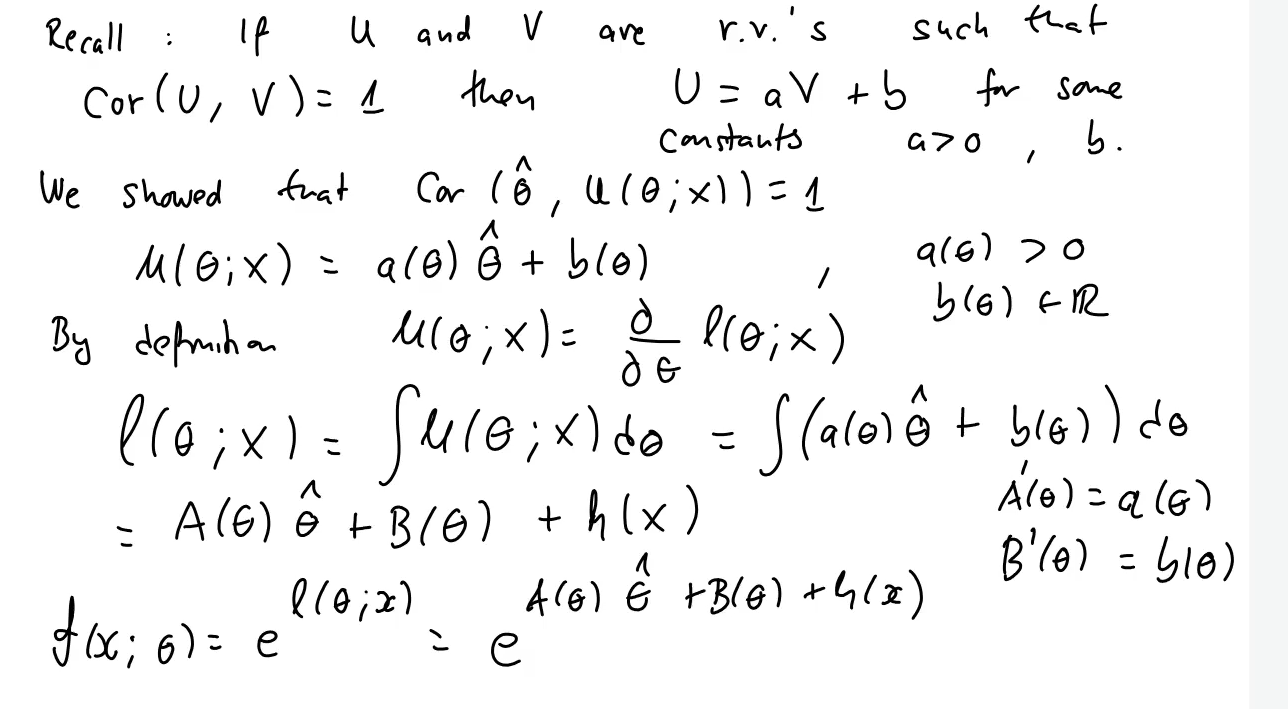 Recall : If U and V are r.v.'s such that
Cor(U, V) = 1 then U = aV + b for some
constants a>0 , b.
We showed that Cor (θ̂, U(θ;x)) = 1
U(θ;x) = a(θ) θ̂ + b(θ) , a(θ) > 0
b(θ) ∈ ℝ
By definition U(θ;x) = ∂/∂θ l(θ;x)
l(θ;x) = ∫U(θ;x)dθ = ∫(a(θ) θ̂ + b(θ)) dθ
= A(θ) θ̂ + B(θ) + h(x) A'(θ) = a(θ)
B'(θ) = b(θ)
f(x;θ) = e^{l(θ;x)} = e^{A(θ) θ̂ + B(θ) + h(x)}